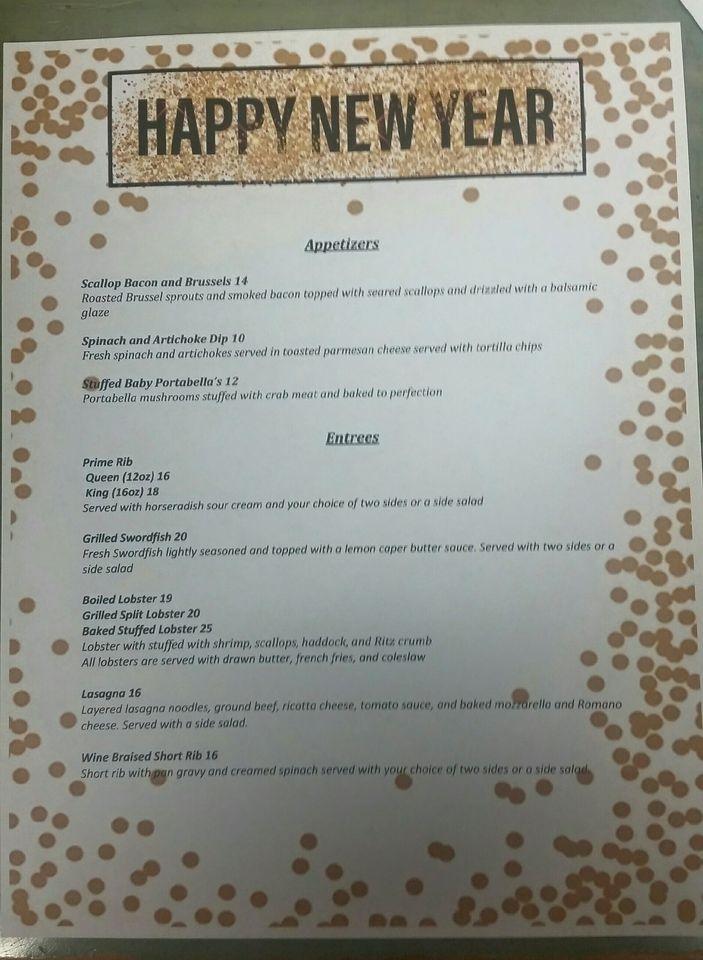 HAPPY NEW YEAR
Appetizers
Scallop Bacon and Brussels 14
Roasted Brussel sprouts and smoked bacon topped with seared scallops and drizzled with a balsamic
glaze
Spinach and Artichoke Dip 10
Fresh spinach and artichokes served in toasted parmesan cheese served with tortilla chips
Stuffed Baby Portabella's 12
Portabella mushrooms stuffed with crab meat and baked to perfection
Entrees
Prime Rib
Queen (12oz) 16
King (16oz) 18
Served with horseradish sour cream and your choice of two sides or a side salad
Grilled Swordfish 20
Fresh Swordfish lightly seasoned and topped with a lemon caper butter sauce. Served with two sides or a
side salad
Boiled Lobster 19
Grilled Split Lobster 20
Baked Stuffed Lobster 25
Lobster with stuffed with shrimp, scallops, haddock, and Ritz crumb
All lobsters are served with drawn butter, french fries, and coleslaw
Lasagna 16
Layered lasagna noodles, ground beef, ricotta cheese, tomato sauce, and baked mozzarella and Romano
cheese. Served with a side salad.
Wine Braised Short Rib 16
Short rib with pan gravy and creamed spinach served with your choice of two sides or a side salad.